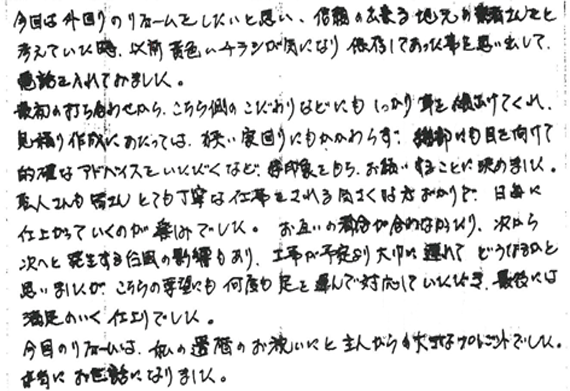 今回は外回りのリフォームをしたいと思い、信頼の出来る地元の業者さんをと
考えていた時、以前黄色いチラシが気になり保存してあった事を思い出して、
電話を入れてみました。
最初の打ち合わせから、こちら側のこだわりなどにもしっかり耳を傾けてくれ、
見積り作成にあたっては、狭い家回りにもかかわらず、細部にも目を向けて
的確なアドバイスをいただくなど、好印象をもち、お願いすることに決めました。
職人さんも皆さんとても丁寧な仕事をされる気さくな方ばかりで、日毎に
仕上がっていくのが楽しみでした。お互いの都合が合わなかったり、次から
次へと発生する台風の影響もあり、工事が予定より大巾に遅れてどうなるかと
思いましたが、こちらの要望にも何度も足を運んで対応していただき、最後には
満足のいく仕上りでした。
今回のリフォームは、私の還暦のお祝いにと主人からの大きなプレゼントでした。
本当にお世話になりました。